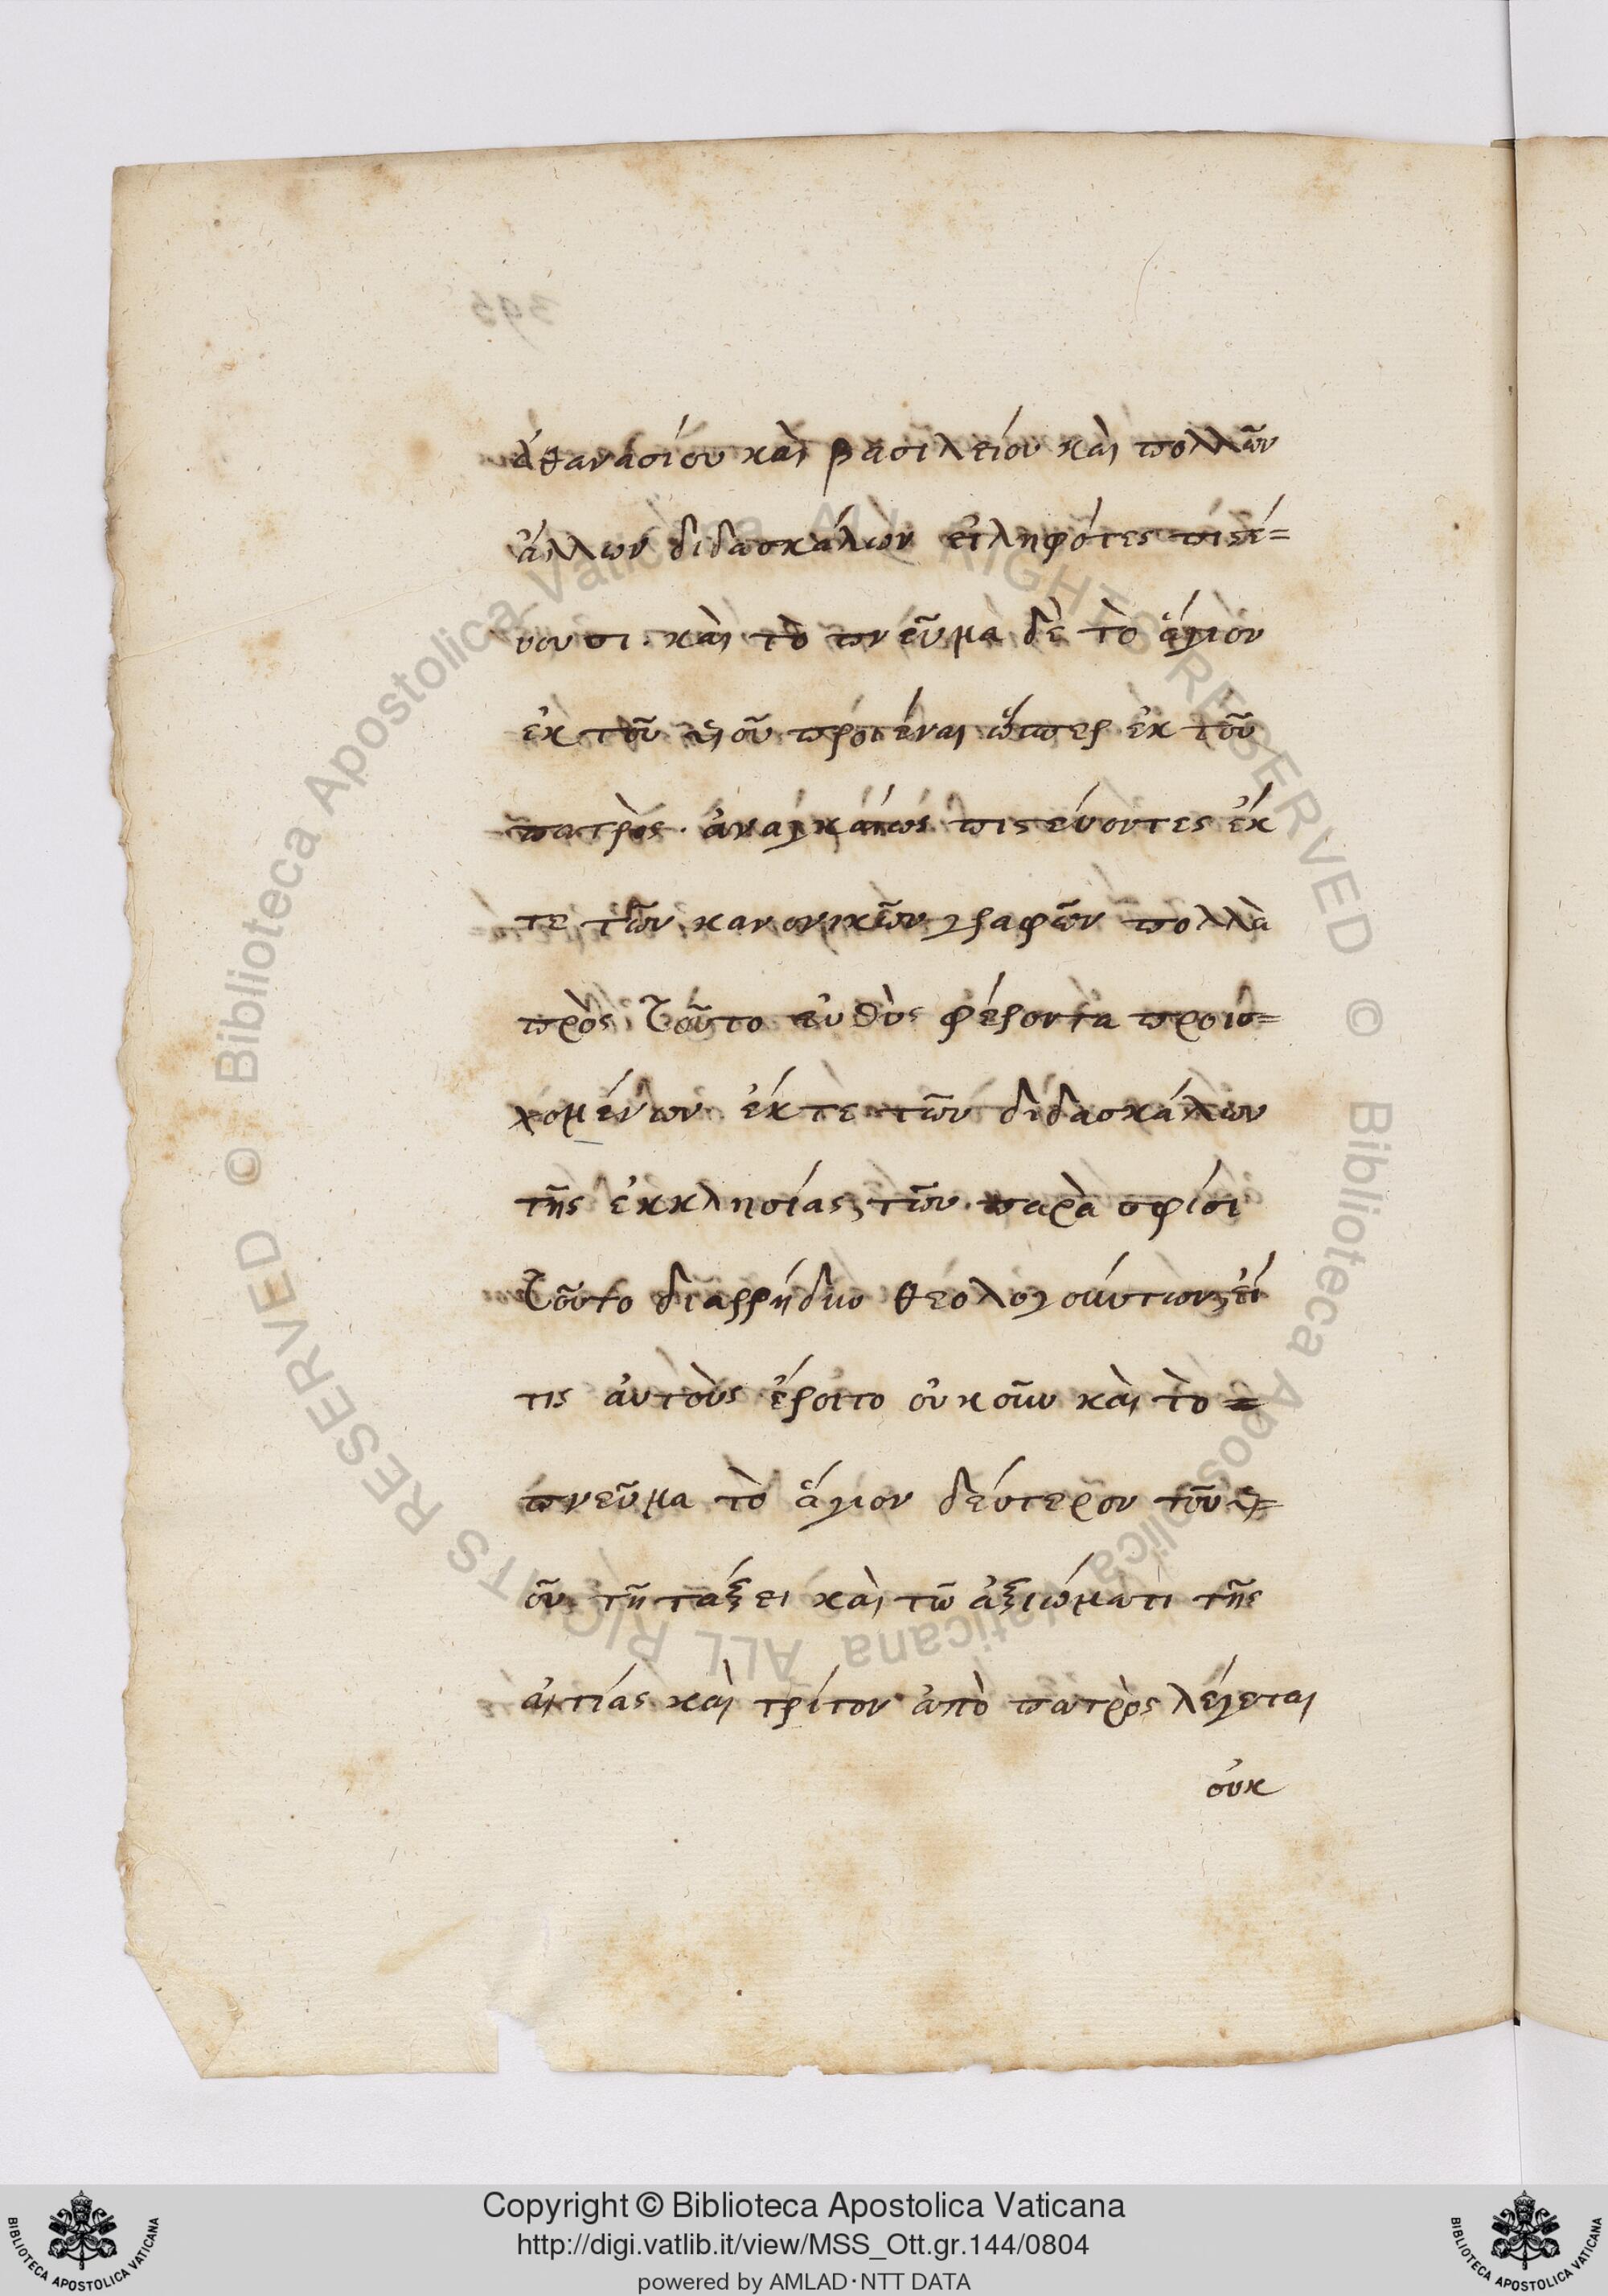 ἀθανασίου καὶ βασιλείου καὶ πολλῶν
ἄλλων διδασκάλων εἰληφότες πιστέ=
υουσι. καὶ τὸ πνεῦμα δὲ τὸ ἅγιον
ἐκ τοῦ υἱοῦ προϊέναι ὥσπερ ἐκ τοῦ
πατρὸς. ἀναγκαίως πιστεύοντες ἐκ
τε τῶν κανονικῶν γραφῶν πολλὰ
πρὸς τοῦτο εὐθὺς φέροντα προισ=
χομένων ἐκ τε τῶν διδασκάλων
τῆς ἐκκλησίας, τῶν παρὰ σφίσι
τοῦτο διαρρήδην θεολογούντων, εἴ
τις αὐτοὺς ἔροιτο οὐκοῦν καὶ τὸ =
πνεῦμα τὸ ἅγιον δεύτερον τοῦ υἱ=
οῦ τῆ τάξει καὶ τῶ ἀξιώματι τῆς
αἰτίας καὶ τρίτον ἀπὸ πατρὸς λέγεται
οὐκ
395
© Biblioteca Apostolica Vaticana ALL RIGHTS RESERVED © Biblioteca Apostolica Vaticana ALL RIGHTS RESERVED
Copyright © Biblioteca Apostolica Vaticana
http://digi.vatlib.it/view/MSS_Ott.gr.144/0804
powered by AMLAD·NTT DATA
BIBLIOTECA APOSTOLICA VATICANA
BIBLIOTECA APOSTOLICA VATICANA